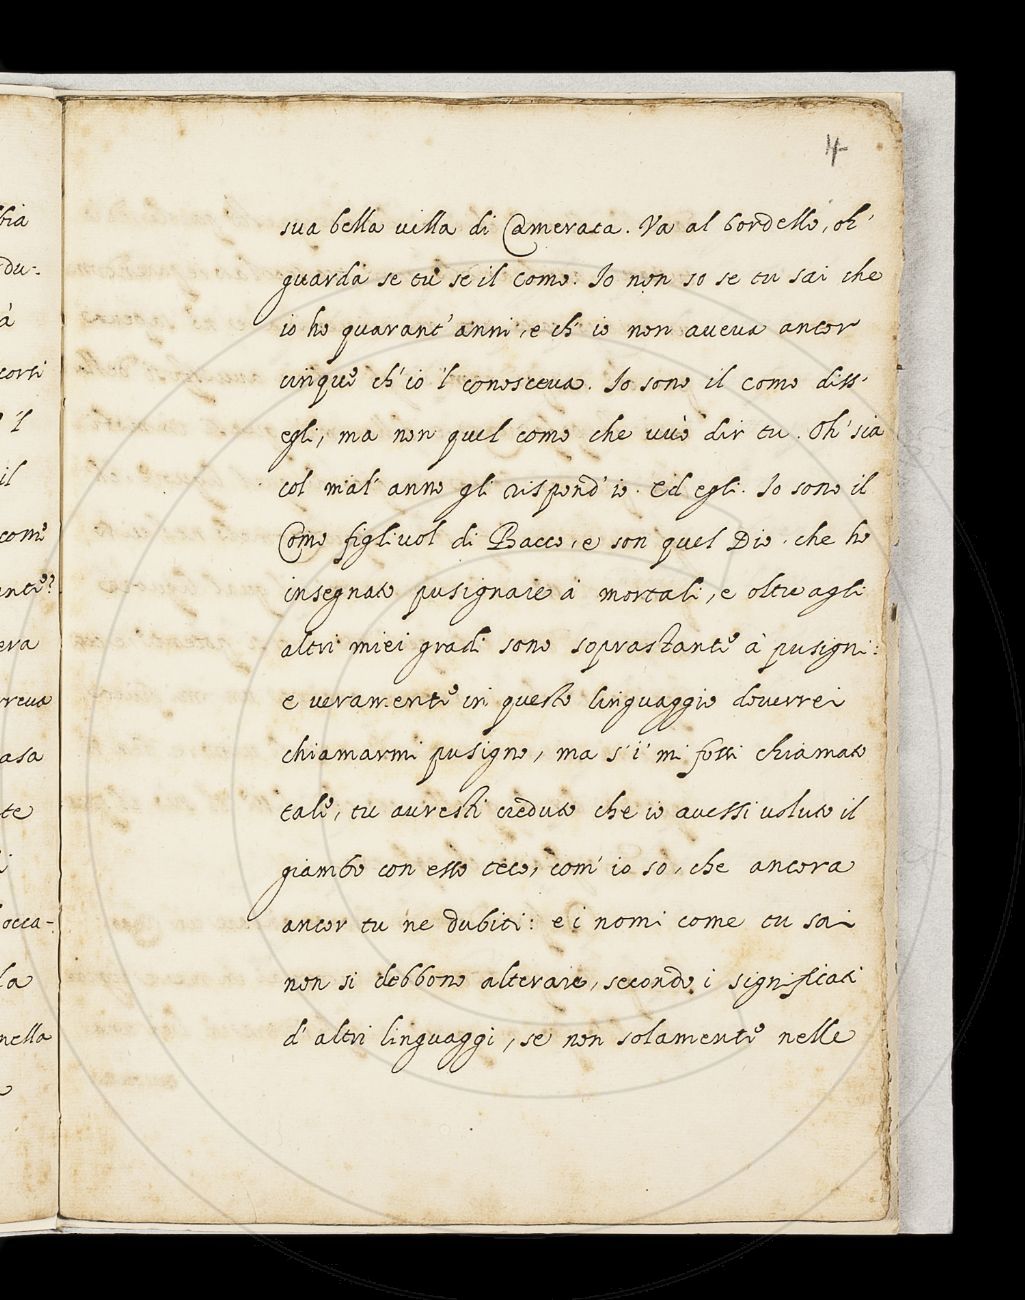 4
sua bella uilla di Camerata. Va al bordello, oh'
guarda se tu se il Como. Io non so se tu sai che
io ho quarant' anni, e ch' io non aueua ancor
cinque ch' io 'l conosceua. Io sono il Como diss'
egli, ma non quel como che uuò dir tu. Oh' sia
col mal' anno gli rispond' io. Ed egli. Io sono il
Como figliuol di Bacco, e son quel Dio. che ho
insegnato pusignare a' mortali, e oltre agli
altri miei gradi sono soprastante à pusigni:
e veramente in questo linguaggio douerrei
chiamarmi pusigno, ma s' i' mi fossi chiamato
tale, tu auresti creduto che io auessi uoluto il
giambo con esso teco, com' io so, che ancora
ancor tu ne dubiti: e i nomi come tu sai
non si debbono alterare, secondo i significati
d' altri linguaggi, se non solamente nelle